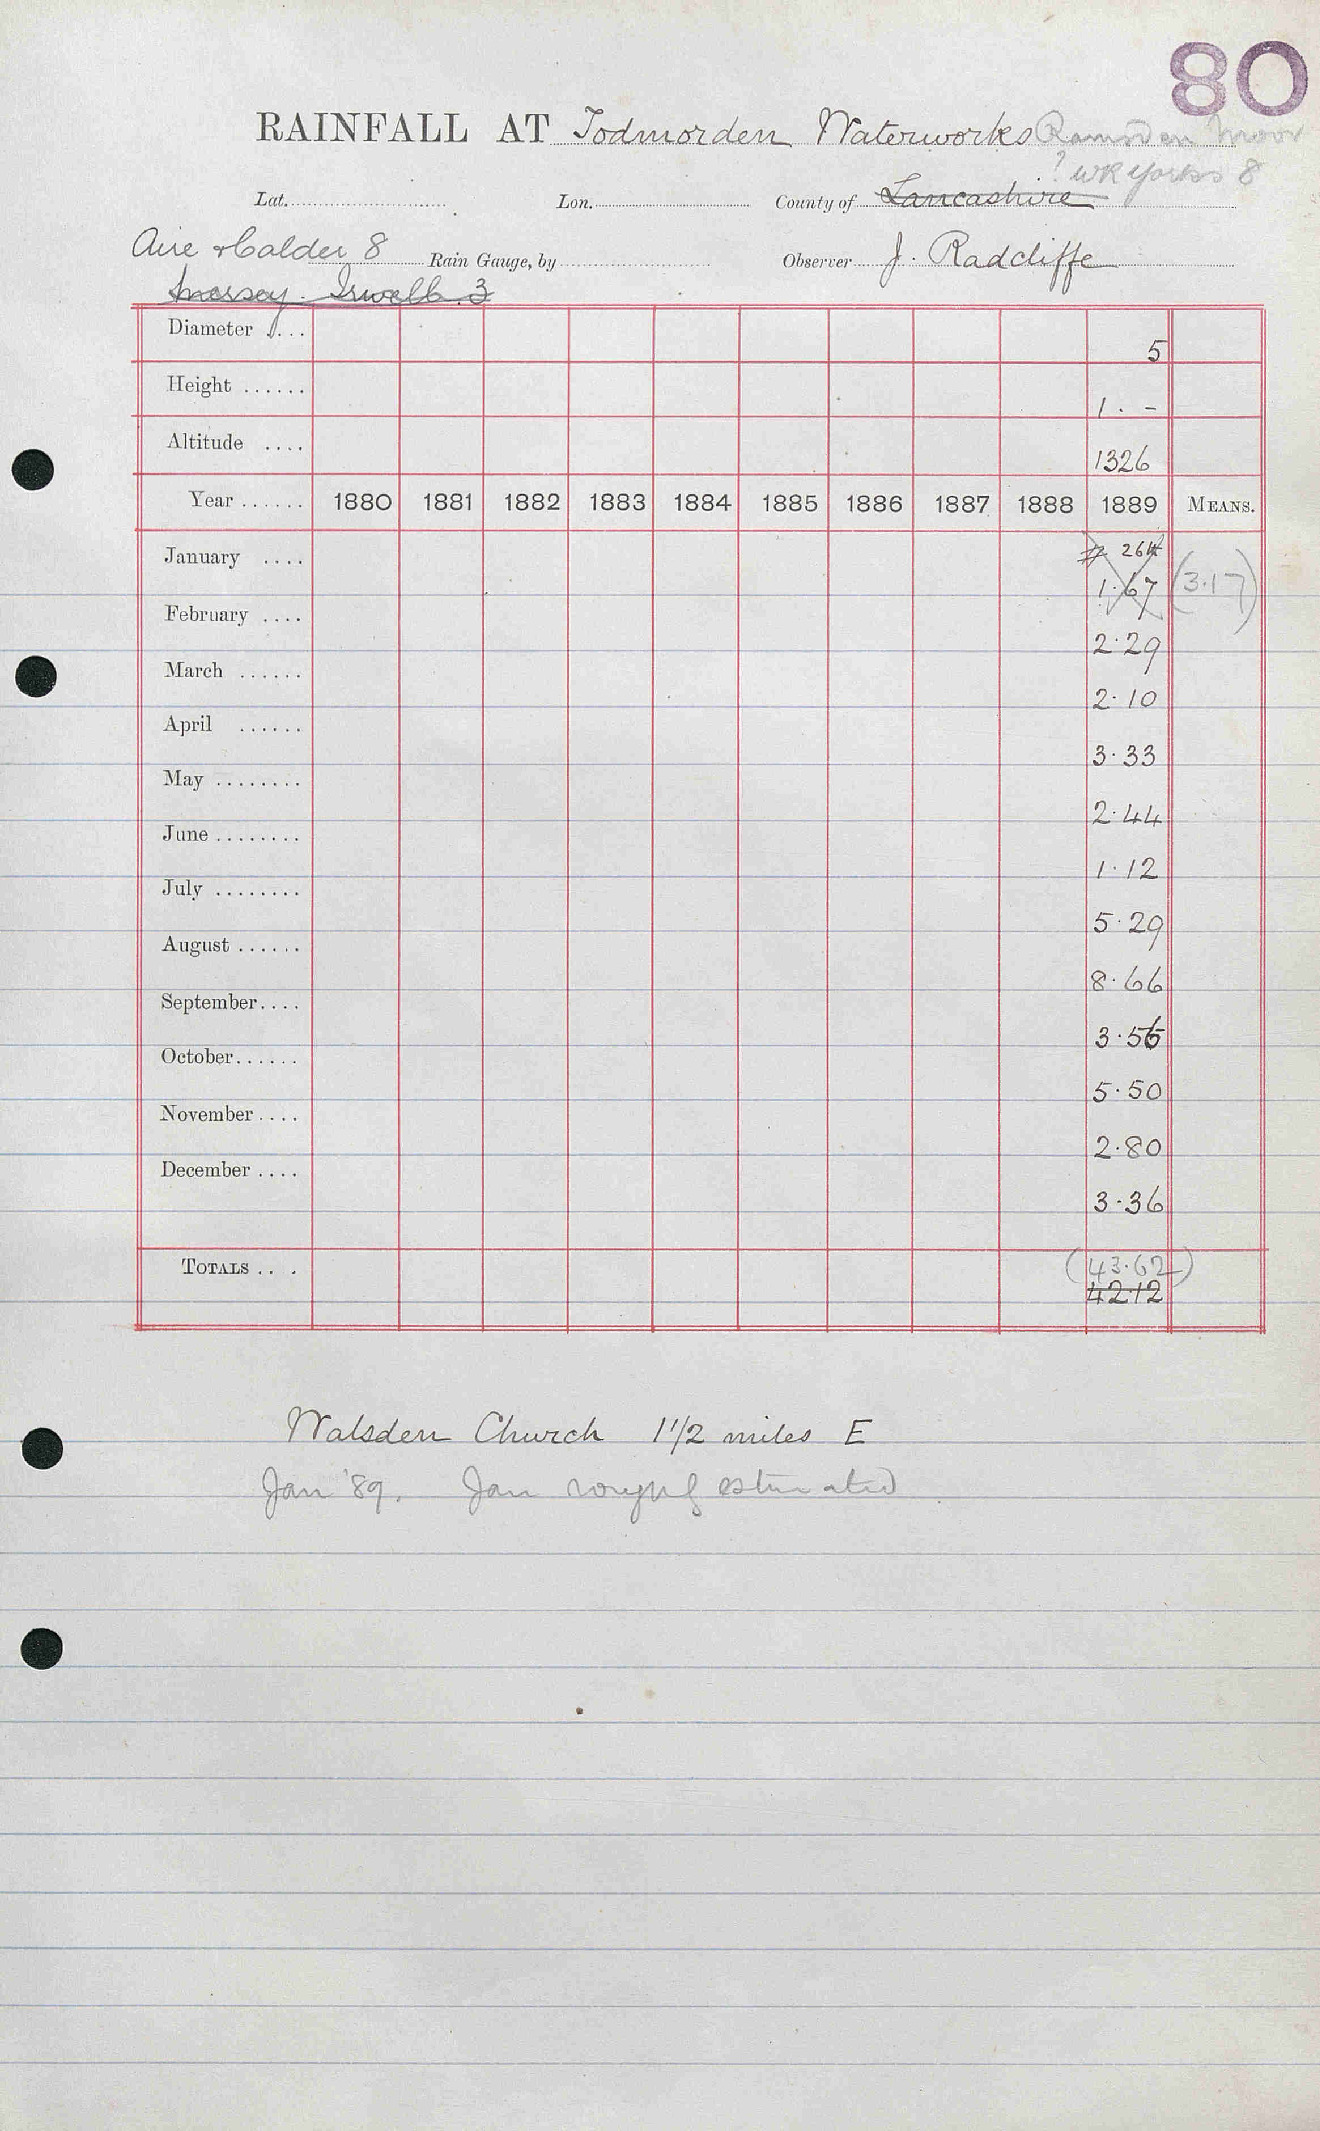 80
RAINFALL AT Todmorden Waterworks Ramsden Moor
? WR Yorks 8
Lat. Lon. County of Lancashire
Aire & Calder 8 Rain Gauge, by Observer J. Radcliffe
Mersey. Irwell. 3
Diameter .... 5
Height ...... 1. -
Altitude .... 1326
Year ...... 1880 1881 1882 1883 1884 1885 1886 1887 1888 1889 MEANS.
January .... 264
1.67 (3.17)
February .... 2.29
March ...... 2.10
April ...... 3.33
May ........ 2.44
June ........ 1.12
July ........ 5.29
August ...... 8.66
September.... 3.56
October...... 5.50
November .... 2.80
December .... 3.36
TOTALS .. . (43.62)
42.12
Walsden Church 1 1/2 miles E
Jan '89. Jan roughly estimated